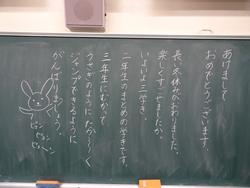 あけまして
おめでとうございます。
長い冬休みがおわりました。
楽しくすごせましたか。
いよいよ三学き。
二年生のまとめの学きです。
三年生にむかって
うさぎのようにたか〜く
ジャンプできるように
がんばりましょう。
ピョン
ピョン
ピョーン